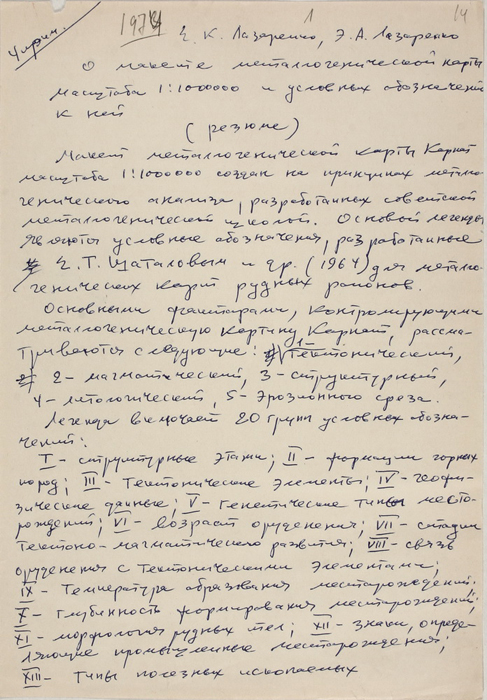 1974 1 14
Е. К. Лазаренко, Э. А. Лазаренко
О макете металлогенической карты
масштаба 1:1000000 и условных обозначений
к ней
(резюме)
Макет металлогенической карты Карпат
масштаба 1:1000000 создан на принципах металло-
генического анализа, разработанных советской
металлогенической школой. Основой легенды
являются условные обозначения, разработанные
Е. Т. Шаталовым и др. (1964) для металло-
генических карт рудных районов.
Основными факторами, контролирующими
металлогеническую картину Карпат, рассма-
триваются следующие: 1 – тектонический,
2 – магматический, 3 – структурный,
4 – литологический, 5 – эрозионного среза.
Легенда включает 20 групп условных обозна-
чений:
I – структурные этажи; II – формации горных
пород; III – тектонические элементы; IV – геофи-
зические данные; V – генетические типы место-
рождений; VI – возраст оруденения; VII – стадии
тектоно-магматического развития; VIII – связь
оруденения с тектоническими элементами;
IX – температура образования месторождений;
X – глубинность формирования месторождений;
XI – морфология рудных тел; XII – знаки, опреде-
ляющие промышленные месторождения;
XIII – типы полезных ископаемых